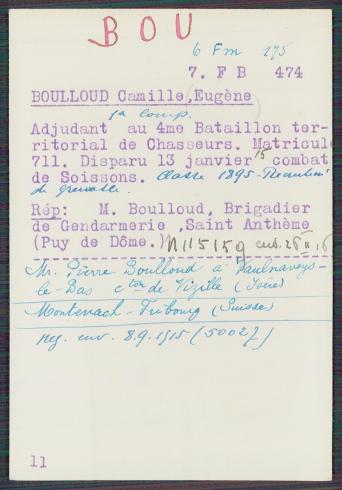 BOU
6 Fm 275
7. F B 474
BOULLOUD Camille,Eugène
1a comp.
Adjudant au 4me Bataillon ter-
ritorial de Chasseurs. Matricul
711. Disparu 13 janvier 15 combat
de Soissons. Classe 1895 - Recrutemt
de Grenoble.
Rép: M. Boulloud, Brigadier
de Gendarmerie ,Saint Anthème
(Puy de Dôme.) N 115159
Mr. Pierre Boulloud à Vaulnaveys-
le-Bas cton de Vizille (Isère)
Montenach - Fribourg (Suisse)
neg. env. 8.9.1915 (50027)
11